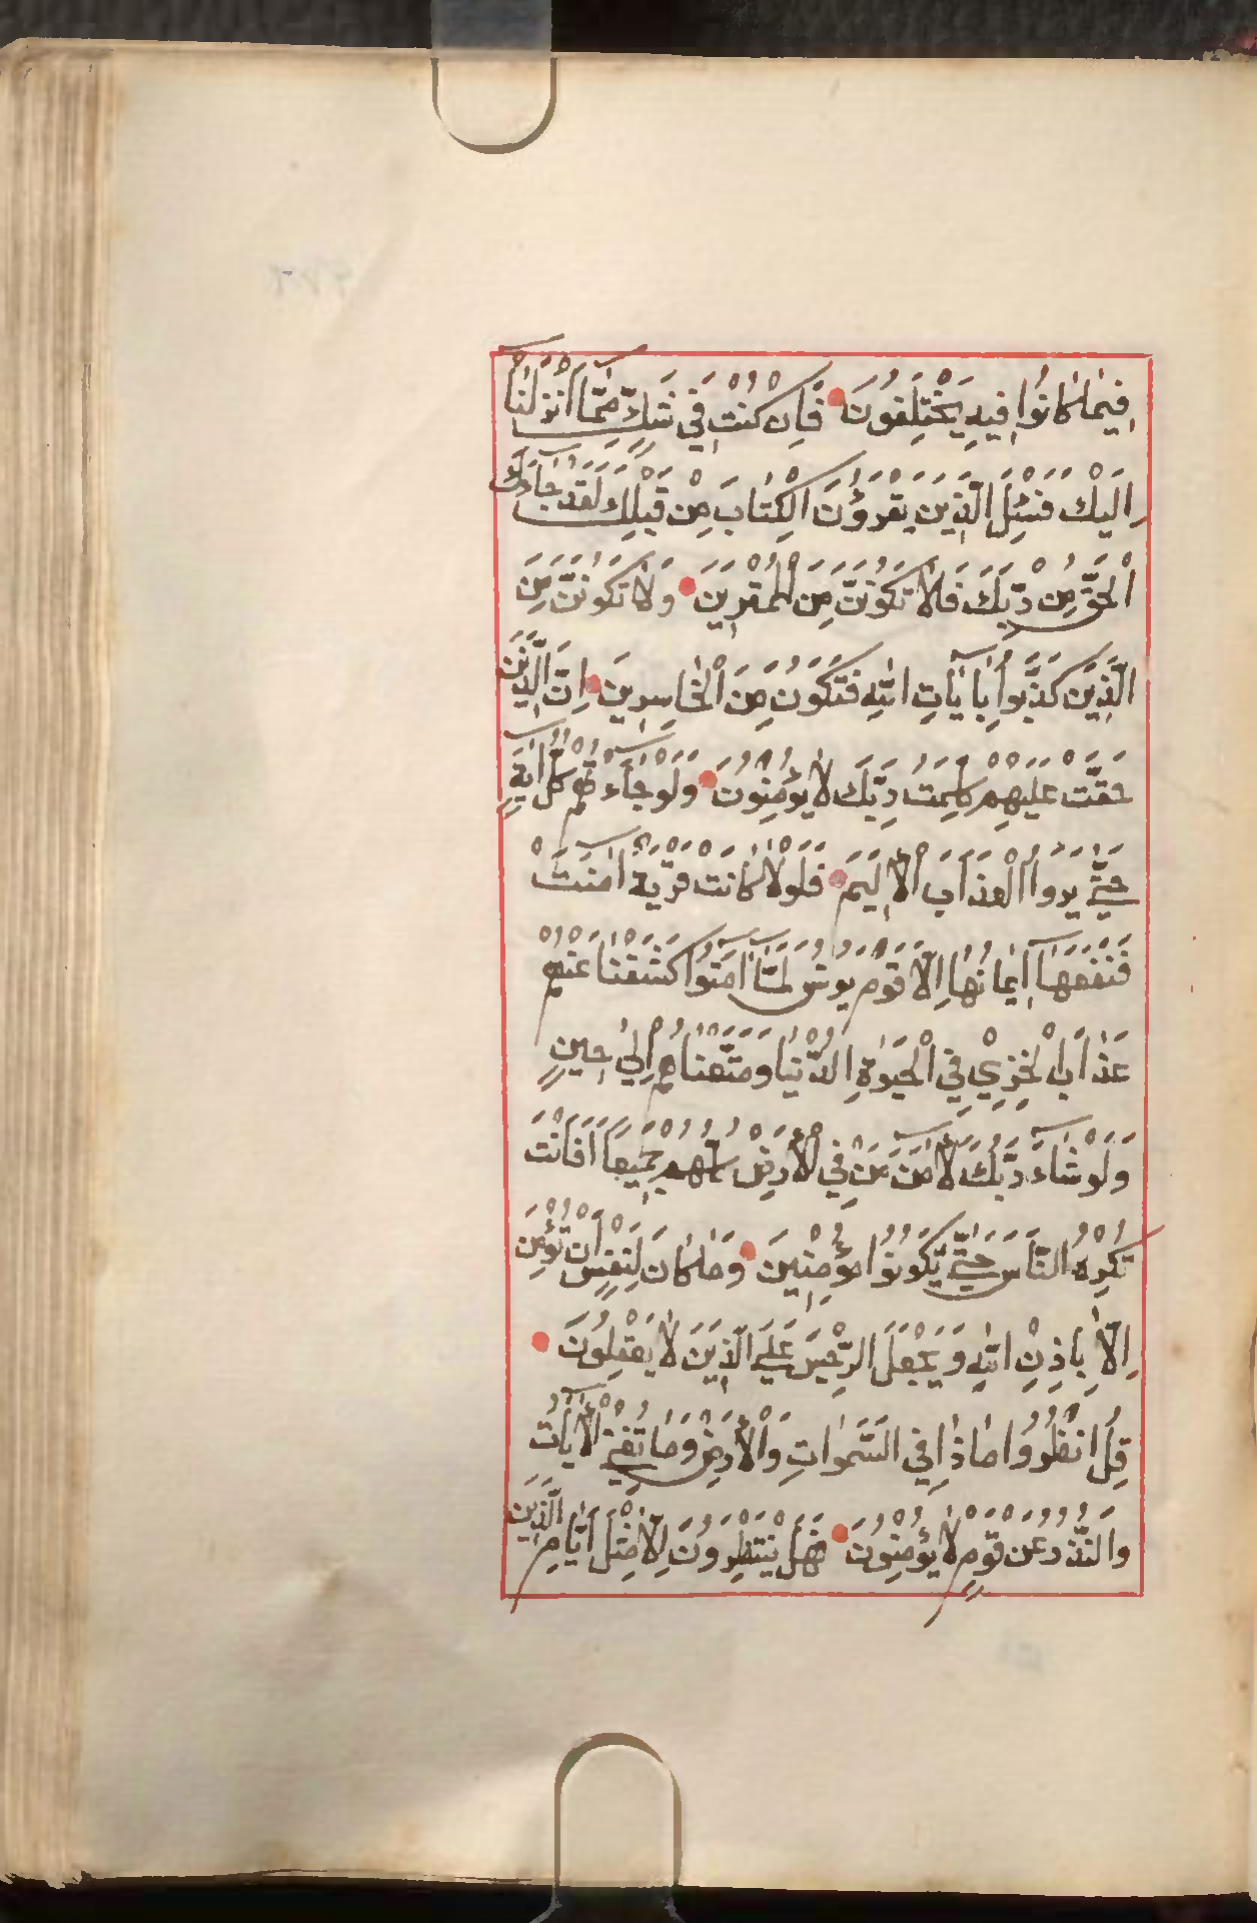 فِيمَا كَانُوا فِيهِ يَخْتَلِفُونَ فَإِنْ كُنْتَ فِي شَكٍّ مِمَّا أَنْزَلْنَا
إِلَيْكَ فَسْئَلِ الَّذِينَ يَقْرَؤُنَ الْكِتَابَ مِنْ قَبْلِكَ لَقَدْ جَاءَكَ
الْحَقُّ مِنْ رَبِّكَ فَلَا تَكُونَنَّ مِنَ الْمُمْتَرِينَ وَلَا تَكُونَنَّ مِنَ
الَّذِينَ كَذَّبُوا بِآيَاتِ اللَّهِ فَتَكُونَ مِنَ الْخَاسِرِينَ إِنَّ الَّذِينَ
حَقَّتْ عَلَيْهِمْ كَلِمَتُ رَبِّكَ لَا يُؤْمِنُونَ وَلَوْ جَاءَتْهُمْ كُلُّ آيَةٍ
حَتَّى يَرَوُا الْعَذَابَ الْأَلِيمَ فَلَوْلَا كَانَتْ قَرْيَةٌ آمَنَتْ
فَنَفَعَهَا إِيمَانُهَا إِلَّا قَوْمَ يُونُسَ لَمَّا آمَنُوا كَشَفْنَا عَنْهُمْ
عَذَابَ الْخِزْيِ فِي الْحَيَوةِ الدُّنْيَا وَمَتَّعْنَاهُمْ إِلَى حِينٍ
وَلَوْ شَاءَ رَبُّكَ لَآمَنَ مَنْ فِي الْأَرْضِ كُلُّهُمْ جَمِيعًا أَفَأَنْتَ
تُكْرِهُ النَّاسَ حَتَّى يَكُونُوا مُؤْمِنِينَ وَمَا كَانَ لِنَفْسٍ أَنْ تُؤْمِنَ
إِلَّا بِإِذْنِ اللَّهِ وَيَجْعَلُ الرِّجْسَ عَلَى الَّذِينَ لَا يَعْقِلُونَ
قُلِ انْظُرُوا مَاذَا فِي السَّمَوَاتِ وَالْأَرْضِ وَمَا تُغْنِي الْآيَاتُ
وَالنُّذُرُ عَنْ قَوْمٍ لَا يُؤْمِنُونَ فَهَلْ يَنْتَظِرُونَ إِلَّا مِثْلَ أَيَّامِ الَّذِينَ